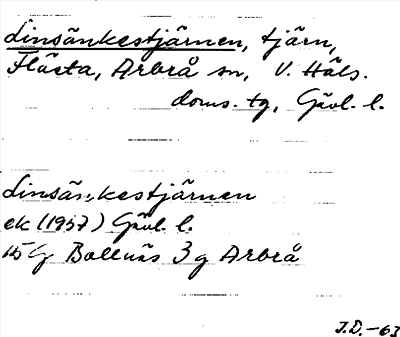 Linsänkestjärnen, tjärn,
Flästa, Arbrå sn, V. Häls.
doms. tg, Gävl. l.
Linsänkestjärnen
ek (1957) Gävl. l.
15G Bollnäs 3g Arbrå
J.D. -63